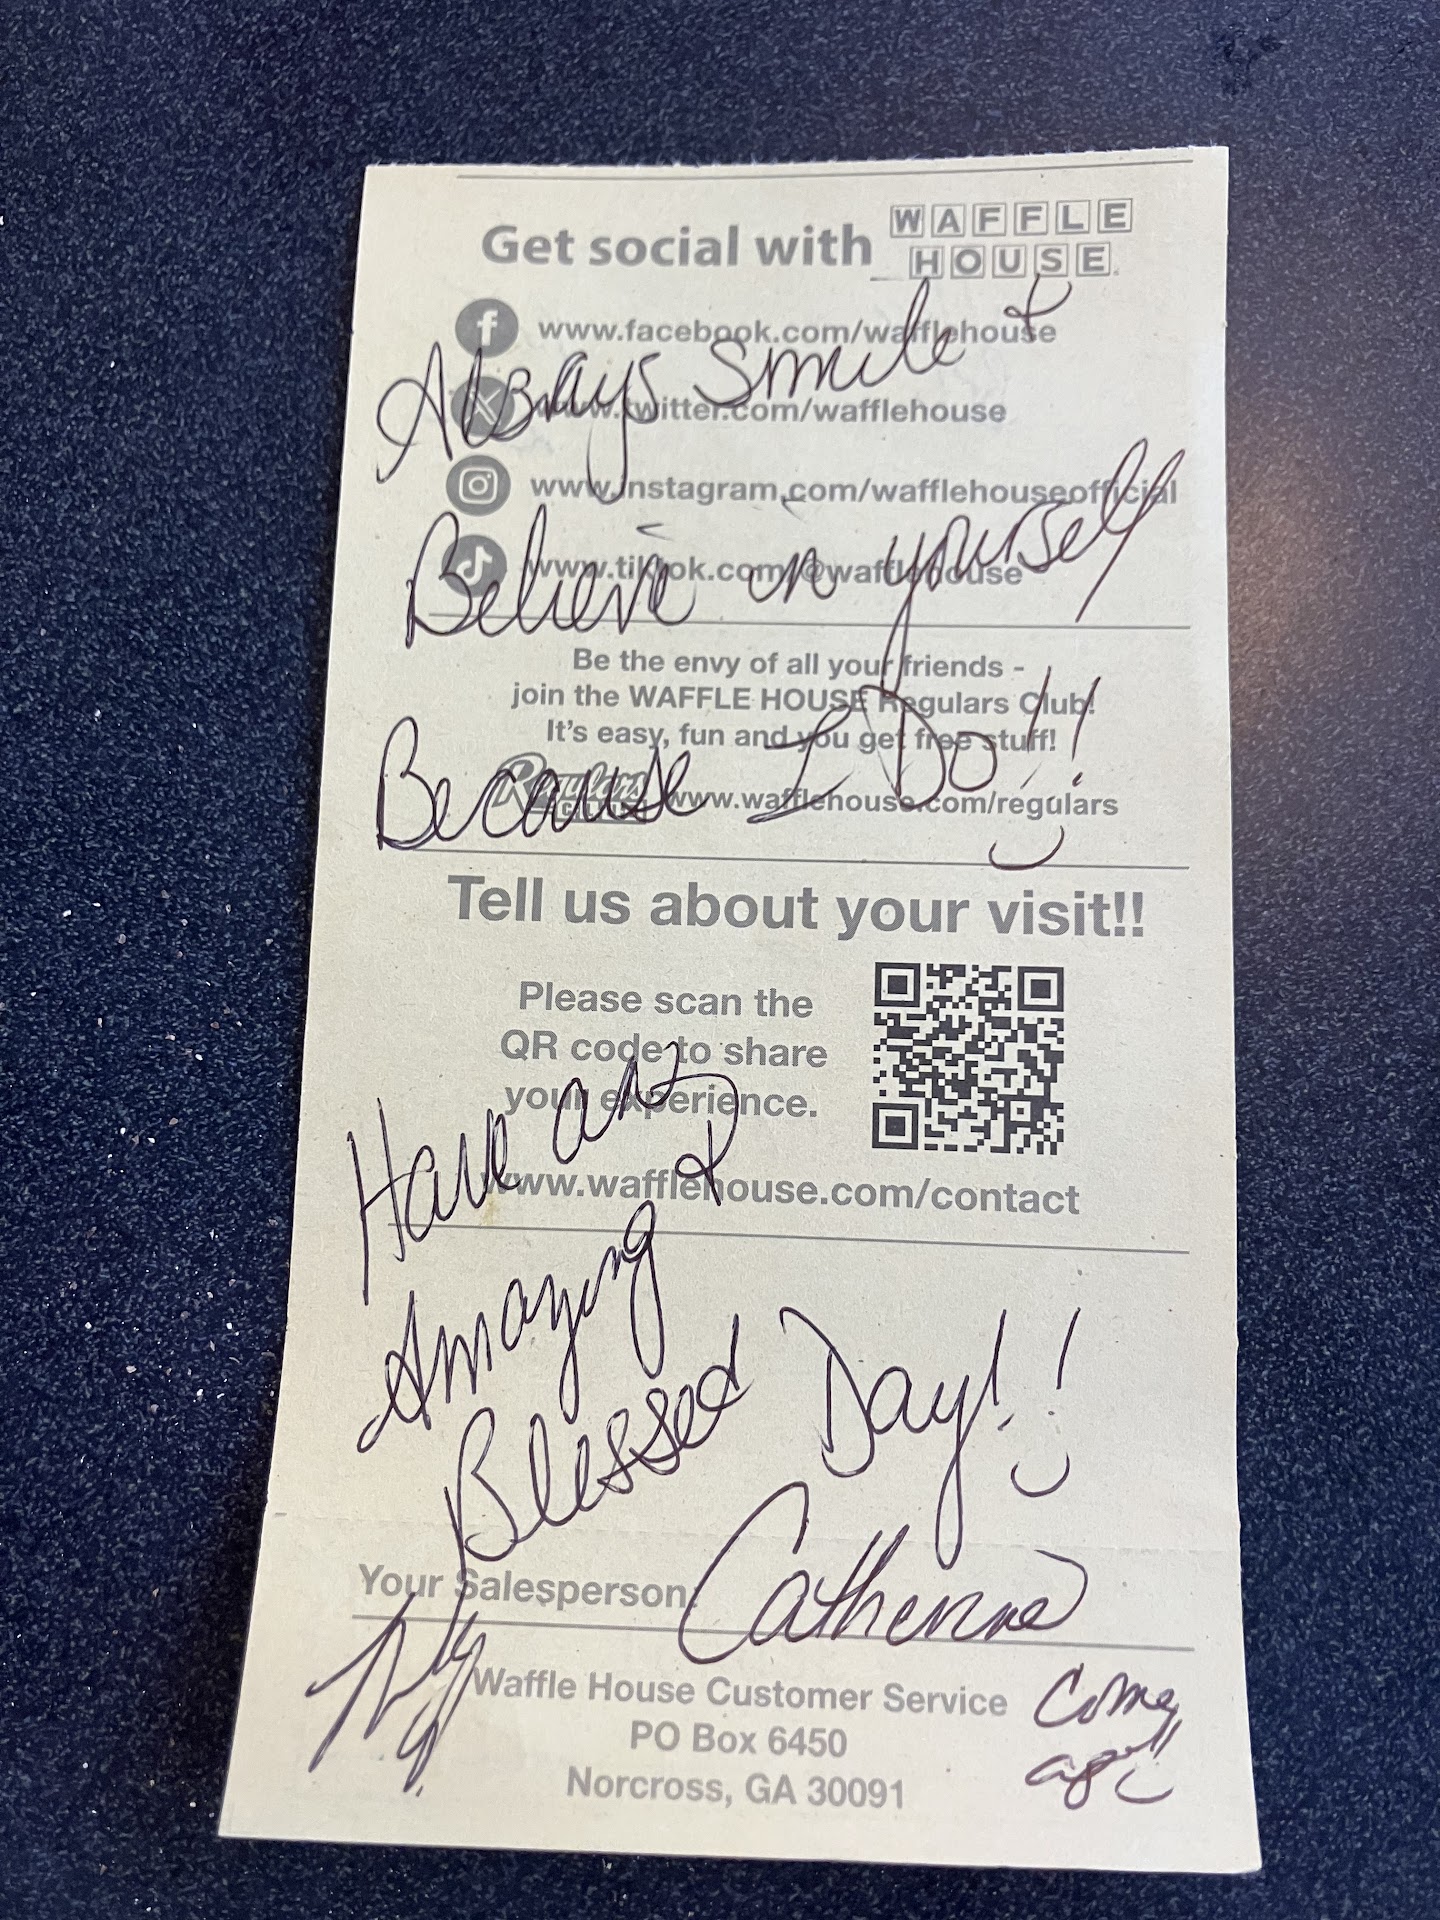 Get social with WAFFLE
HOUSE
www.facebook.com/wafflehouse
Always Smile &
www.twitter.com/wafflehouse
www.instagram.com/wafflehouseofficial
Believe in yourself
www.tiktok.com/@wafflehouse
Be the envy of all your friends -
join the WAFFLE HOUSE Regulars Club!
It's easy, fun and you get free stuff!
Because I Do!!
Regulars
CLUB
www.wafflehouse.com/regulars
Tell us about your visit!!
Please scan the
QR code to share
your experience.
Have an
www.wafflehouse.com/contact
Amazing &
Blessed Day!!
Your Salesperson: Catherine
Waffle House Customer Service
PO Box 6450
Norcross, GA 30091
Come